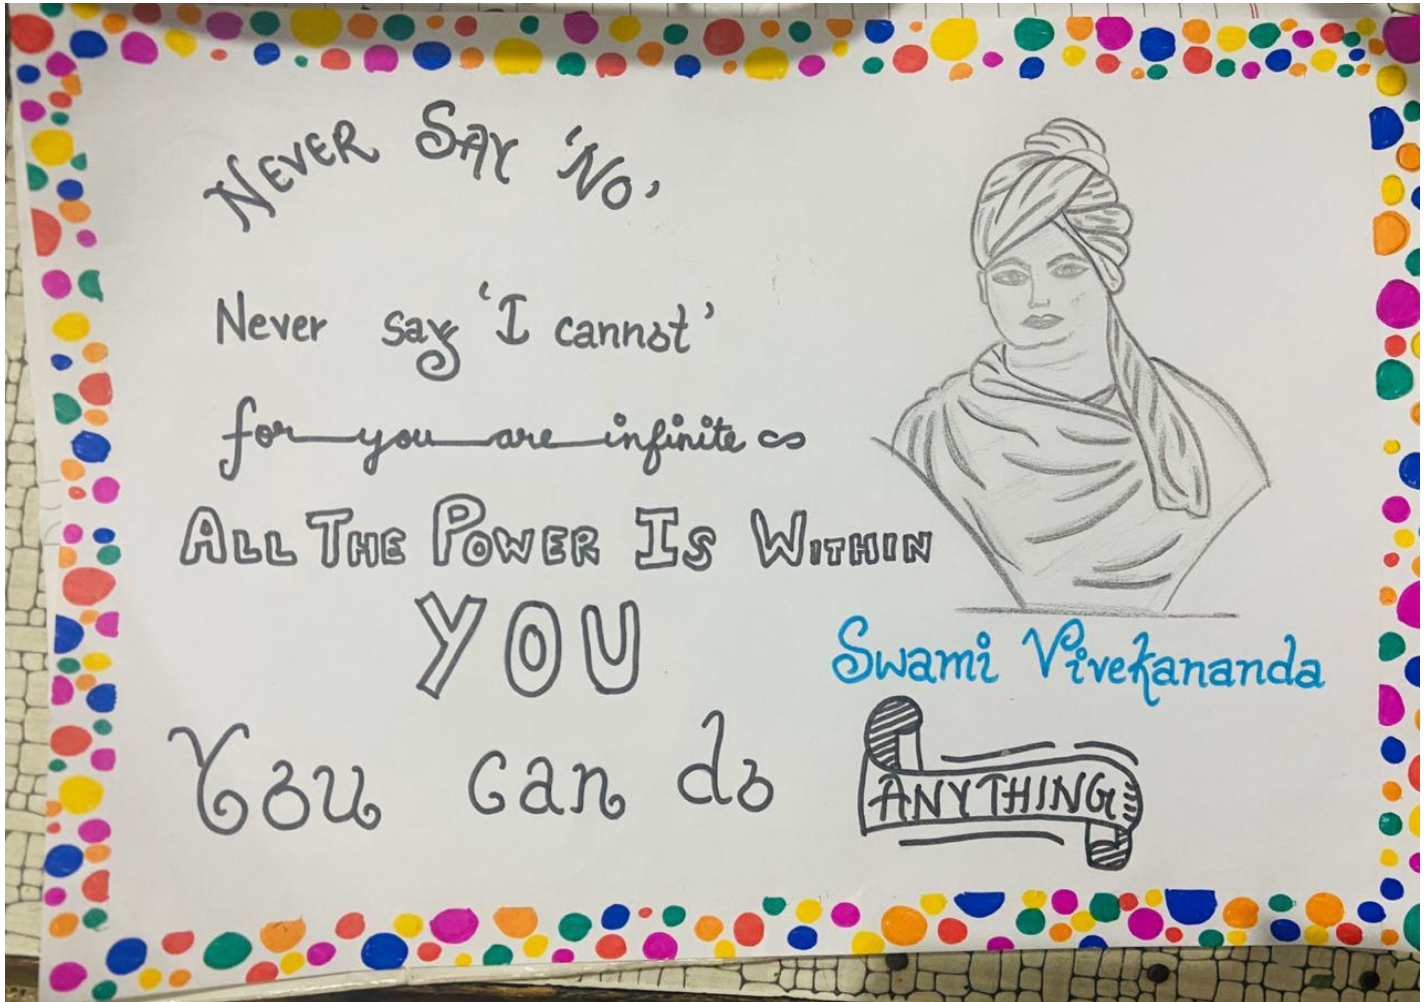 NEVER SAY 'NO'
Never say 'I cannot'
for you are infinite ∞
ALL THE POWER IS WITHIN
YOU
Swami Vivekananda
You can do ANYTHING